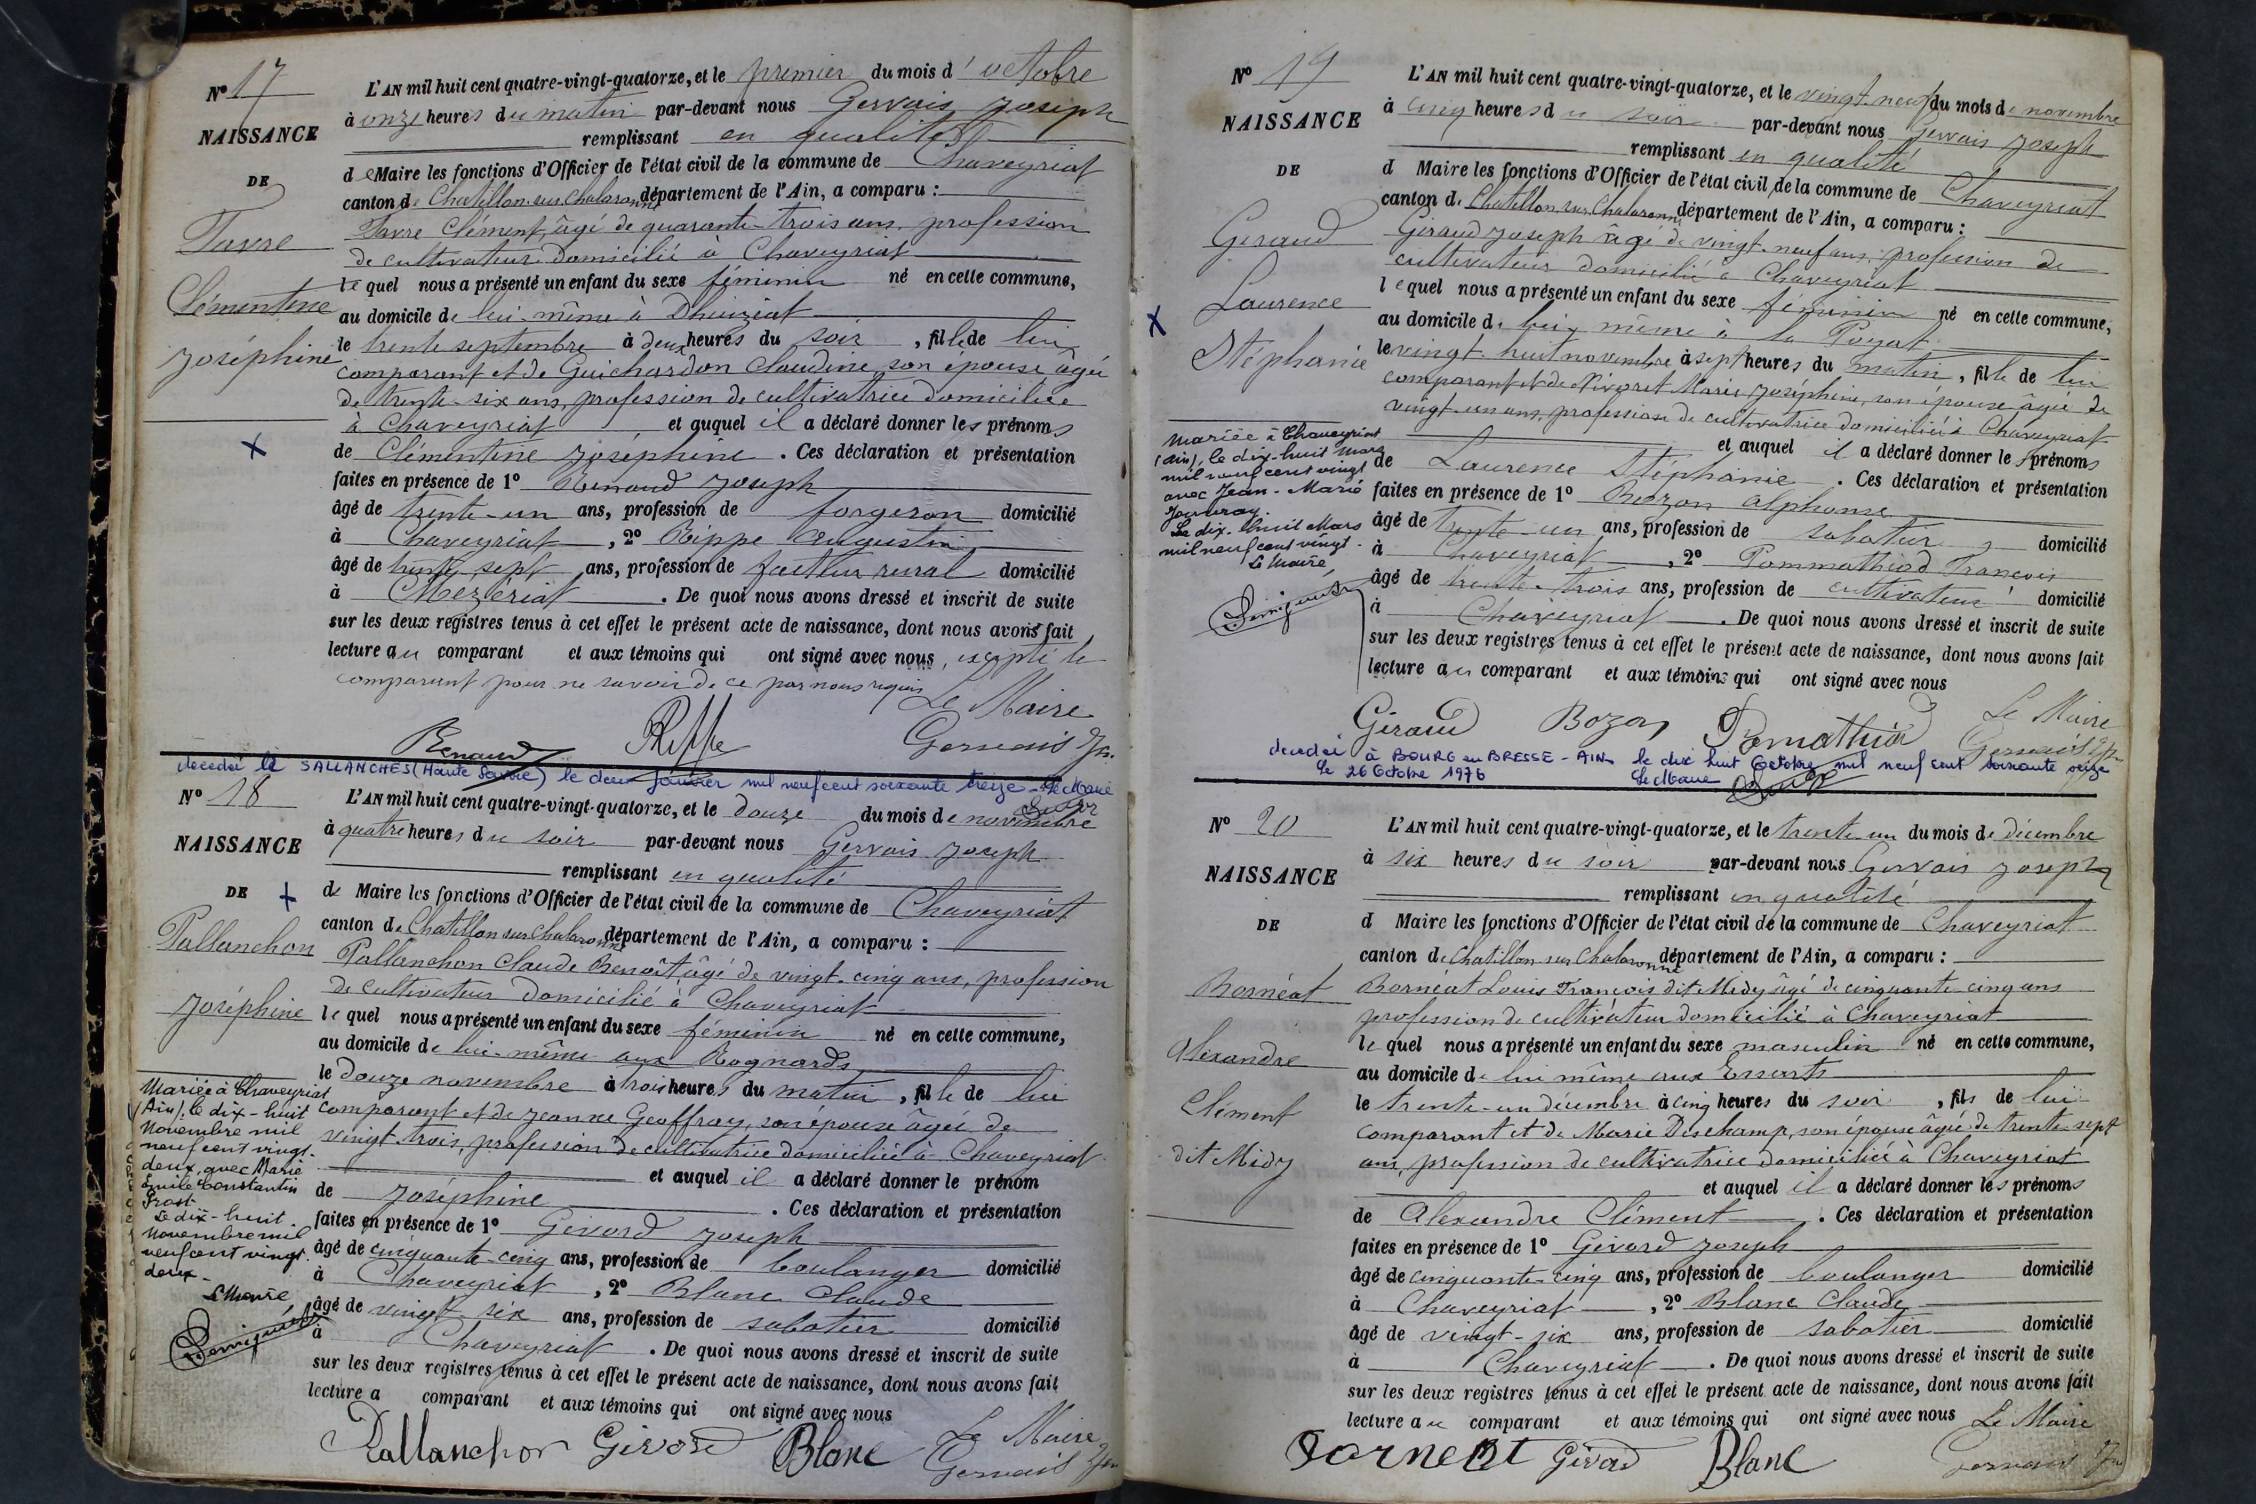 N° 17
NAISSANCE
DE
Favre
Clémentine
Joséphine
L'AN mil huit cent quatre-vingt-quatorze, et le premier du mois d'octobre
à onze heures du matin par-devant nous Gervais Joseph
remplissant en qualité
de Maire les fonctions d'Officier de l'état civil de la commune de Chaveyriat
canton de Chatillon sur Chalaronne département de l'Ain, a comparu :
Favre Clément, âgé de quarante-trois ans, profession
de cultivateur domicilié à Chaveyriat
lequel nous a présenté un enfant du sexe féminin né en cette commune,
au domicile de lui-même à Dhuiziat
le trente septembre à deux heures du soir, fille de lui
comparant et de Guichardon Claudine son épouse âgée
de trente-six ans, profession de cultivatrice domiciliée
à Chaveyriat et auquel il a déclaré donner les prénoms
de Clémentine Joséphine. Ces déclaration et présentation
faites en présence de 1° Renaud Joseph
âgé de trente-un ans, profession de forgeron domicilié
à Chaveyriat, 2° Rippe Augustin
âgé de trente sept ans, profession de facteur rural domicilié
à Mézériat. De quoi nous avons dressé et inscrit de suite
sur les deux registres tenus à cet effet le présent acte de naissance, dont nous avons fait
lecture au comparant et aux témoins qui ont signé avec nous, excepté le
comparant pour ne savoir de ce par nous requis
Le Maire
Renaud Rippe Gervais Jh.
decedée à SALLANCHES (Haute Savoie) le deux Janvier mil neuf cent soixante treize - Le Maire
N° 18
NAISSANCE
DE
Pallanchon
Joséphine
Mariée à Chaveyriat
(Ain), le dix-huit
Novembre mil
neuf cent vingt-
deux, avec Marie
Emile Constantin
Prost
Le dix-huit
Novembre mil
neuf cent vingt
deux -
Le Maire
L'AN mil huit cent quatre-vingt-quatorze, et le douze du mois de novembre
à quatre heures du soir par-devant nous Gervais Joseph
remplissant en qualité
de Maire les fonctions d'Officier de l'état civil de la commune de Chaveyriat
canton de Chatillon sur Chalaronne département de l'Ain, a comparu :
Pallanchon Claude Benoît âgé de vingt-cinq ans, profession
de cultivateur domicilié à Chaveyriat
lequel nous a présenté un enfant du sexe féminin né en cette commune,
au domicile de lui-même aux Rognards
le douze novembre à trois heures du matin, fille de lui
comparant et de Jeanne Geoffray, son épouse âgée de
vingt-trois, profession de cultivatrice domiciliée à Chaveyriat
et auquel il a déclaré donner le prénom
de Joséphine. Ces déclaration et présentation
faites en présence de 1° Givord Joseph
âgé de cinquante-cinq ans, profession de boulanger domicilié
à Chaveyriat, 2° Blanc Claude
âgé de vingt six ans, profession de sabotier domicilié
à Chaveyriat. De quoi nous avons dressé et inscrit de suite
sur les deux registres tenus à cet effet le présent acte de naissance, dont nous avons fait
lecture a comparant et aux témoins qui ont signé avec nous
Le Maire
Pallanchon Givord Blanc Gervais Jh
N° 19
NAISSANCE
DE
Géraud
Laurence
Stéphanie
Mariée à Chaveyriat
(Ain), le dix-huit Mars
mil neuf cent vingt
avec Jean-Marie
Jouvray.
Le dix-huit Mars
mil neuf cent vingt.
Le Maire
L'AN mil huit cent quatre-vingt-quatorze, et le vingt-neuf du mois de novembre
à cinq heures du soir par-devant nous Gervais Joseph
remplissant en qualité
d Maire les fonctions d'Officier de l'état civil de la commune de Chaveyriat
canton de Chatillon sur Chalaronne département de l'Ain, a comparu :
Géraud Joseph âgé de vingt-neuf ans, profession de
cultivateur domicilié à Chaveyriat
lequel nous a présenté un enfant du sexe féminin né en cette commune,
au domicile de lui-même à la Poyat
le vingt-huit novembre à sept heures du matin, fille de lui
comparant et de Nivoret Marie Joséphine, son épouse âgée de
vingt-un ans, profession de cultivatrice domiciliée à Chaveyriat
et auquel il a déclaré donner les prénoms
de Laurence Stéphanie. Ces déclaration et présentation
faites en présence de 1° Bozon Alphonse
âgé de trente-un ans, profession de sabotier domicilié
à Chaveyriat, 2° Pommathiod François
âgé de trente-trois ans, profession de cultivateur domicilié
à Chaveyriat. De quoi nous avons dressé et inscrit de suite
sur les deux registres tenus à cet effet le présent acte de naissance, dont nous avons fait
lecture au comparant et aux témoins qui ont signé avec nous
Le Maire
Géraud Bozon Pomathiod Gervais Jh
decedée à BOURG en BRESSE - AIN le dix huit Octobre mil neuf cent soixante seize
le 26 Octobre 1976 Le Maire
N° 20
NAISSANCE
DE
Bornéat
Alexandre
Clément
dit Midy
L'AN mil huit cent quatre-vingt-quatorze, et le trente-un du mois de décembre
à six heures du soir par-devant nous Gervais Joseph
remplissant en qualité
d Maire les fonctions d'Officier de l'état civil de la commune de Chaveyriat
canton de Chatillon sur Chalaronne département de l'Ain, a comparu :
Bornéat Louis François dit Midy âgé de cinquante-cinq ans
profession de cultivateur domicilié à Chaveyriat
lequel nous a présenté un enfant du sexe masculin né en cette commune,
au domicile de lui même aux Essarts
le trente-un décembre à cinq heures du soir, fils de lui
comparant et de Marie Deschamp, son épouse âgée de trente-sept
ans, profession de cultivatrice domiciliée à Chaveyriat
et auquel il a déclaré donner les prénoms
de Alexandre Clément. Ces déclaration et présentation
faites en présence de 1° Givord Joseph
âgé de cinquante-cinq ans, profession de boulanger domicilié
à Chaveyriat, 2° Blanc Claude
âgé de vingt-six ans, profession de sabotier domicilié
à Chaveyriat. De quoi nous avons dressé et inscrit de suite
sur les deux registres tenus à cet effet le présent acte de naissance, dont nous avons fait
lecture au comparant et aux témoins qui ont signé avec nous
Le Maire
Givord Blanc Gervais Jh